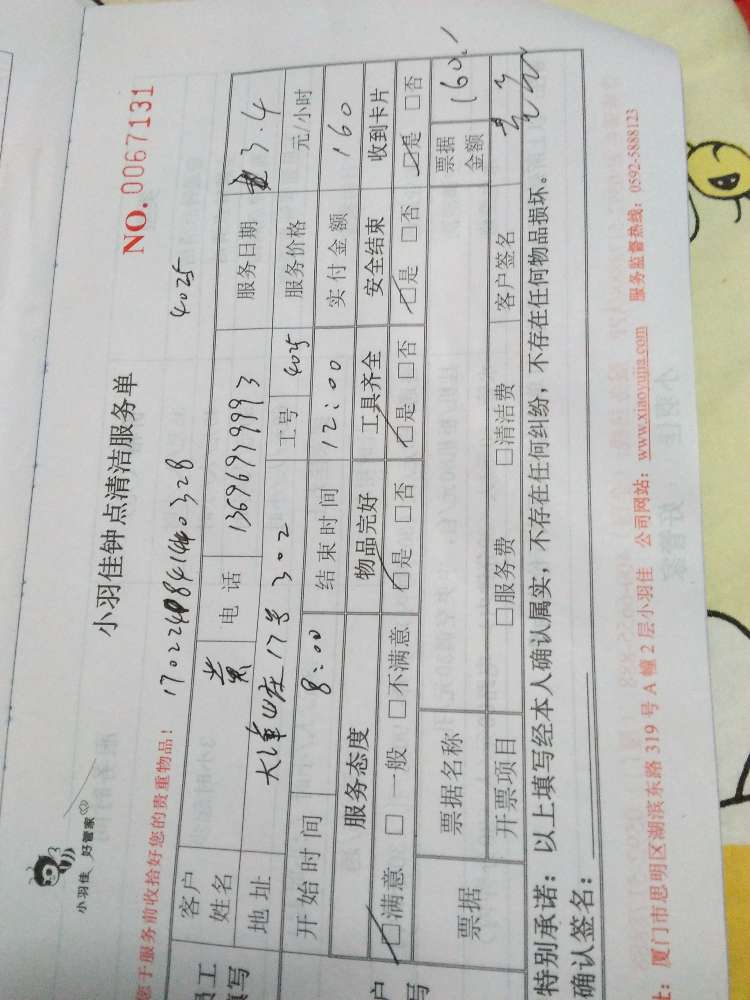 小羽佳 好管家
小羽佳钟点清洁服务单
NO.0067131
4025
您于服务前收拾好您的贵重物品！
员工
填写
客户
姓名
黄
电 话
服务日期
3.4
地 址
大 山庄17号302
工号
4025
服务价格
元/小时
开 始 时 间
8:00
结 束 时 间
12:00
实 付 金 额
160
服务态度
物品完好
工具齐全
安全结束
收到卡片
□满意 □一般 □不满意
□是 □否
□是 □否
□是 □否
□是 □否
户
写
票据
票据名称
票据
金额
160
开票项目
□服务费
□清洁费
客户签名
特别承诺：以上填写经本人确认属实，不存在任何纠纷，不存在任何物品损坏。
确认签名：
址：厦门市思明区湖滨东路 319 号 A 幢 2 层小羽佳 公司网站：www.xiaoyujia.com 服务监督热线：0592-5888123